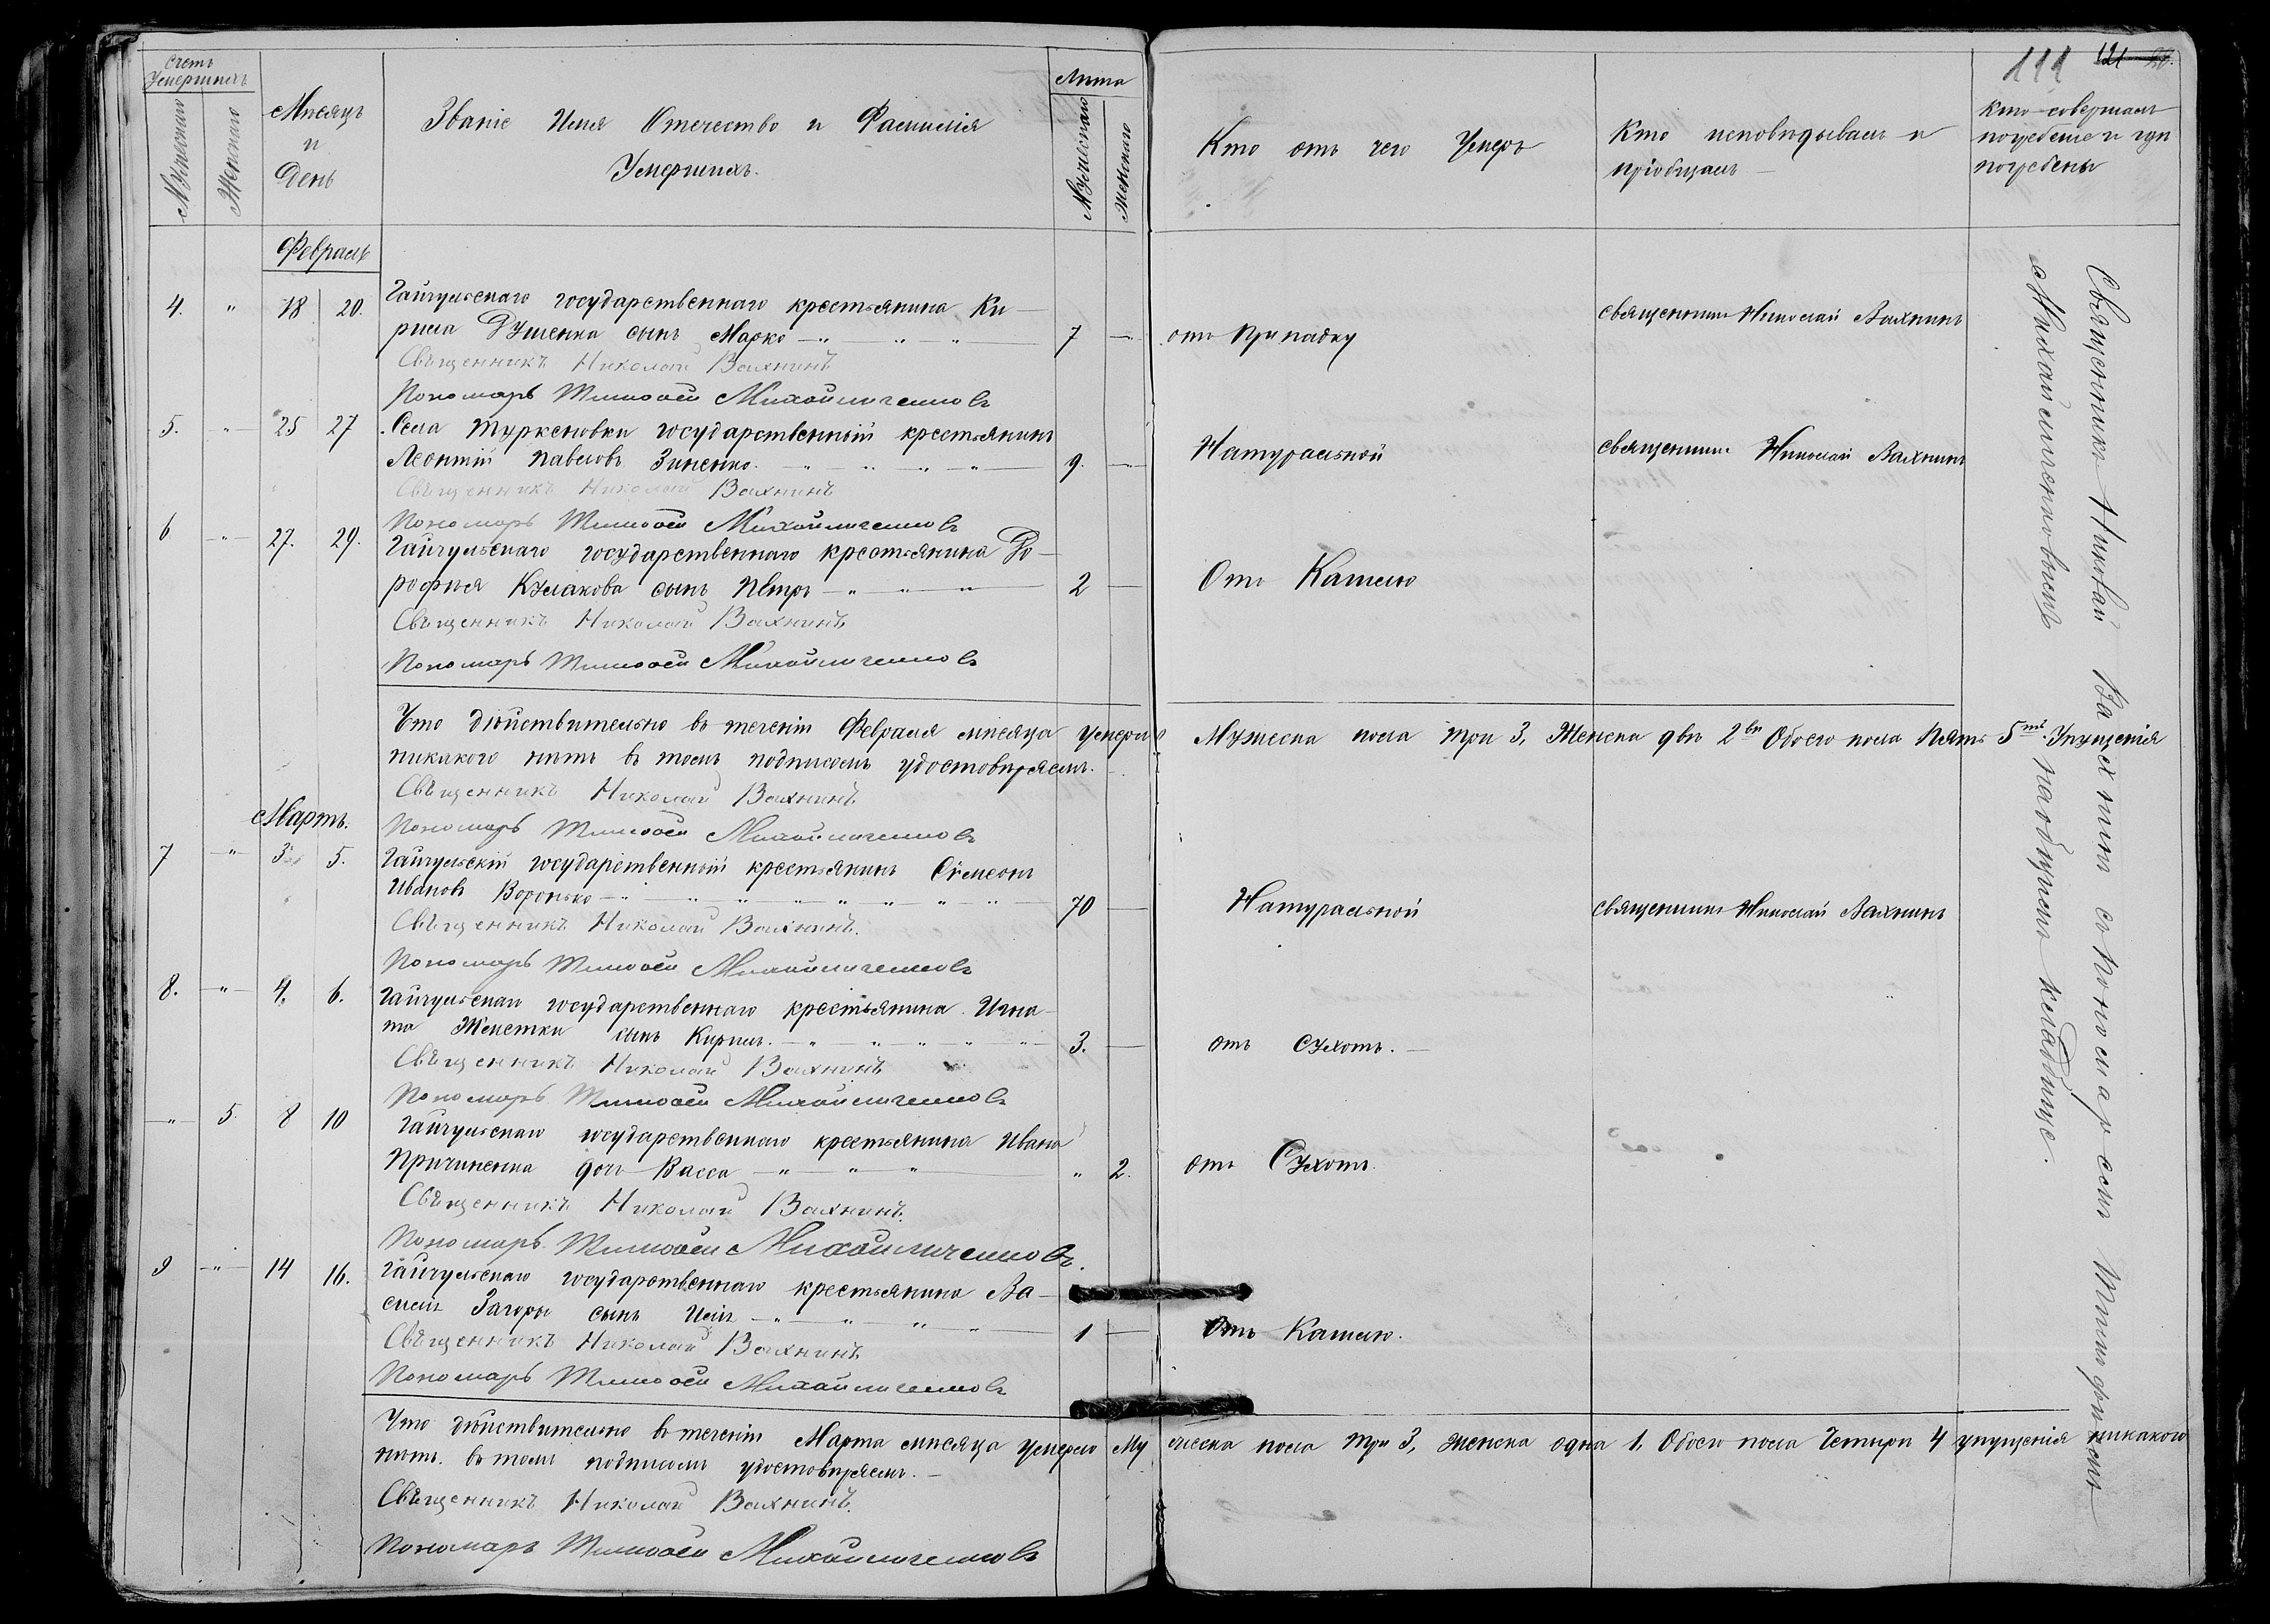 Счетъ
Умершихъ
Мужескаго
Женскаго
Мѣсяцъ
и
День
Званіе Имя Отечество и Фамилія
Умершихъ.
Лѣта
Мужескаго
Женскаго
Кто отъ чего Умеръ
Кто исповѣдывалъ и
пріобщалъ
111 121
Кто совершалъ
погребеніе и гдѣ
погребены
Февраль
4. " 18 20. Гайчульскаго государственнаго крестьянина Ки-
рила Душенка сынъ Марко 7 отъ припадку священникъ Николай Вахнинъ
Священникъ Николай Вахнинъ
Пономарь Тимофей Михайличенковъ
5. " 25 27 Села Туркеновки государственный крестьянинъ
Леонтій Павловъ Зиненко. 9. Натуральной священникъ Николай Вахнинъ
Священникъ Николай Вахнинъ
Пономарь Тимофей Михайличенковъ
6 " 27. 29. Гайчульскаго государственнаго крестьянина До-
рофѣя Кулакова сынъ Петръ 2 Отъ Кашлю
Священникъ Николай Вахнинъ
Пономарь Тимофей Михайличенковъ
Что дѣйствительно въ теченіи Февраля мѣсяца умерло Мужеска пола три 3, Женска двѣ 2вѣ Обоего пола Пять 5ть. Упущенія
никакого нѣтъ въ томъ подписомъ удостовѣряемъ.
Священникъ Николай Вахнинъ
Пономарь Тимофей Михайличенковъ
Мартъ.
7 " 3 5. Гайчульскій государственный крестьянинъ Сѵмеонъ
Ивановъ Воронько 70 Натуральной священникъ Николай Вахнинъ
Священникъ Николай Вахнинъ.
Пономарь Тимофей Михайличенковъ
8. " 4. 6. Гайчульскаго государственнаго крестьянина Игна-
та сынъ Кирилъ. 3. отъ Сухотъ.
Священникъ Николай Вахнинъ
Пономарь Тимофей Михайличенковъ
" 5 8 10 Гайчульскаго государственнаго крестьянина Ивана
Причиненка дочь Васса " 2. отъ Сухотъ.
Священникъ Николай Вахнинъ.
Пономарь Тимофей Михайличенковъ.
9 " 14 16. Гайчульскаго государственнаго крестьянина Ва-
силія Загоры сынъ 1 Отъ Кашлю.
Священникъ Николай Вахнинъ
Пономарь Тимофей Михайличенковъ
Что дѣйствительно въ теченіи Марта мѣсяца умерло Мужеска пола три 3, женска одна 1, Обоего пола Четыри 4 упущенія никакого
нѣтъ. въ томъ подписомъ удостовѣряемъ.
Священникъ Николай Вахнинъ.
Пономарь Тимофей Михайличенковъ
Священникъ Николай Вахнинъ со пономаремъ Тимофѣемъ
Михайличенковымъ на общемъ кладбище.